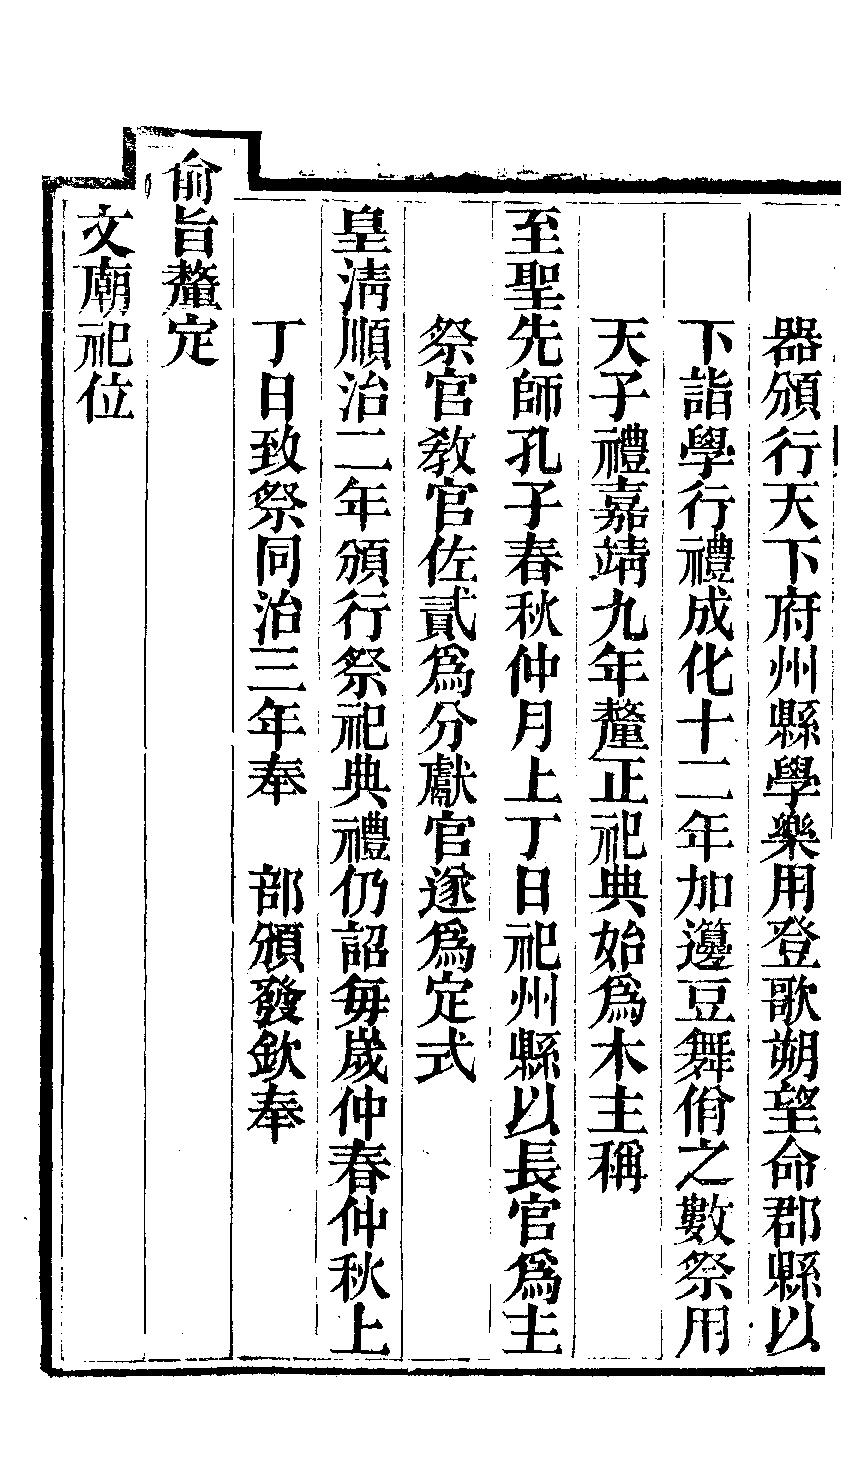 器頒行天下府州縣學樂用登歌朔望命郡縣以
下詣學行禮成化十二年加籩豆舞佾之數祭用
天子禮嘉靖九年釐正祀典始爲木主稱
至聖先師孔子春秋仲月上丁日祀州縣以長官爲主
祭官教官佐貳爲分獻官遂爲定式
皇淸順治二年頒行祭祀典禮仍詔每歲仲春仲秋上
丁日致祭同治三年奉　部頒發欽奉
俞旨釐定
文廟祀位